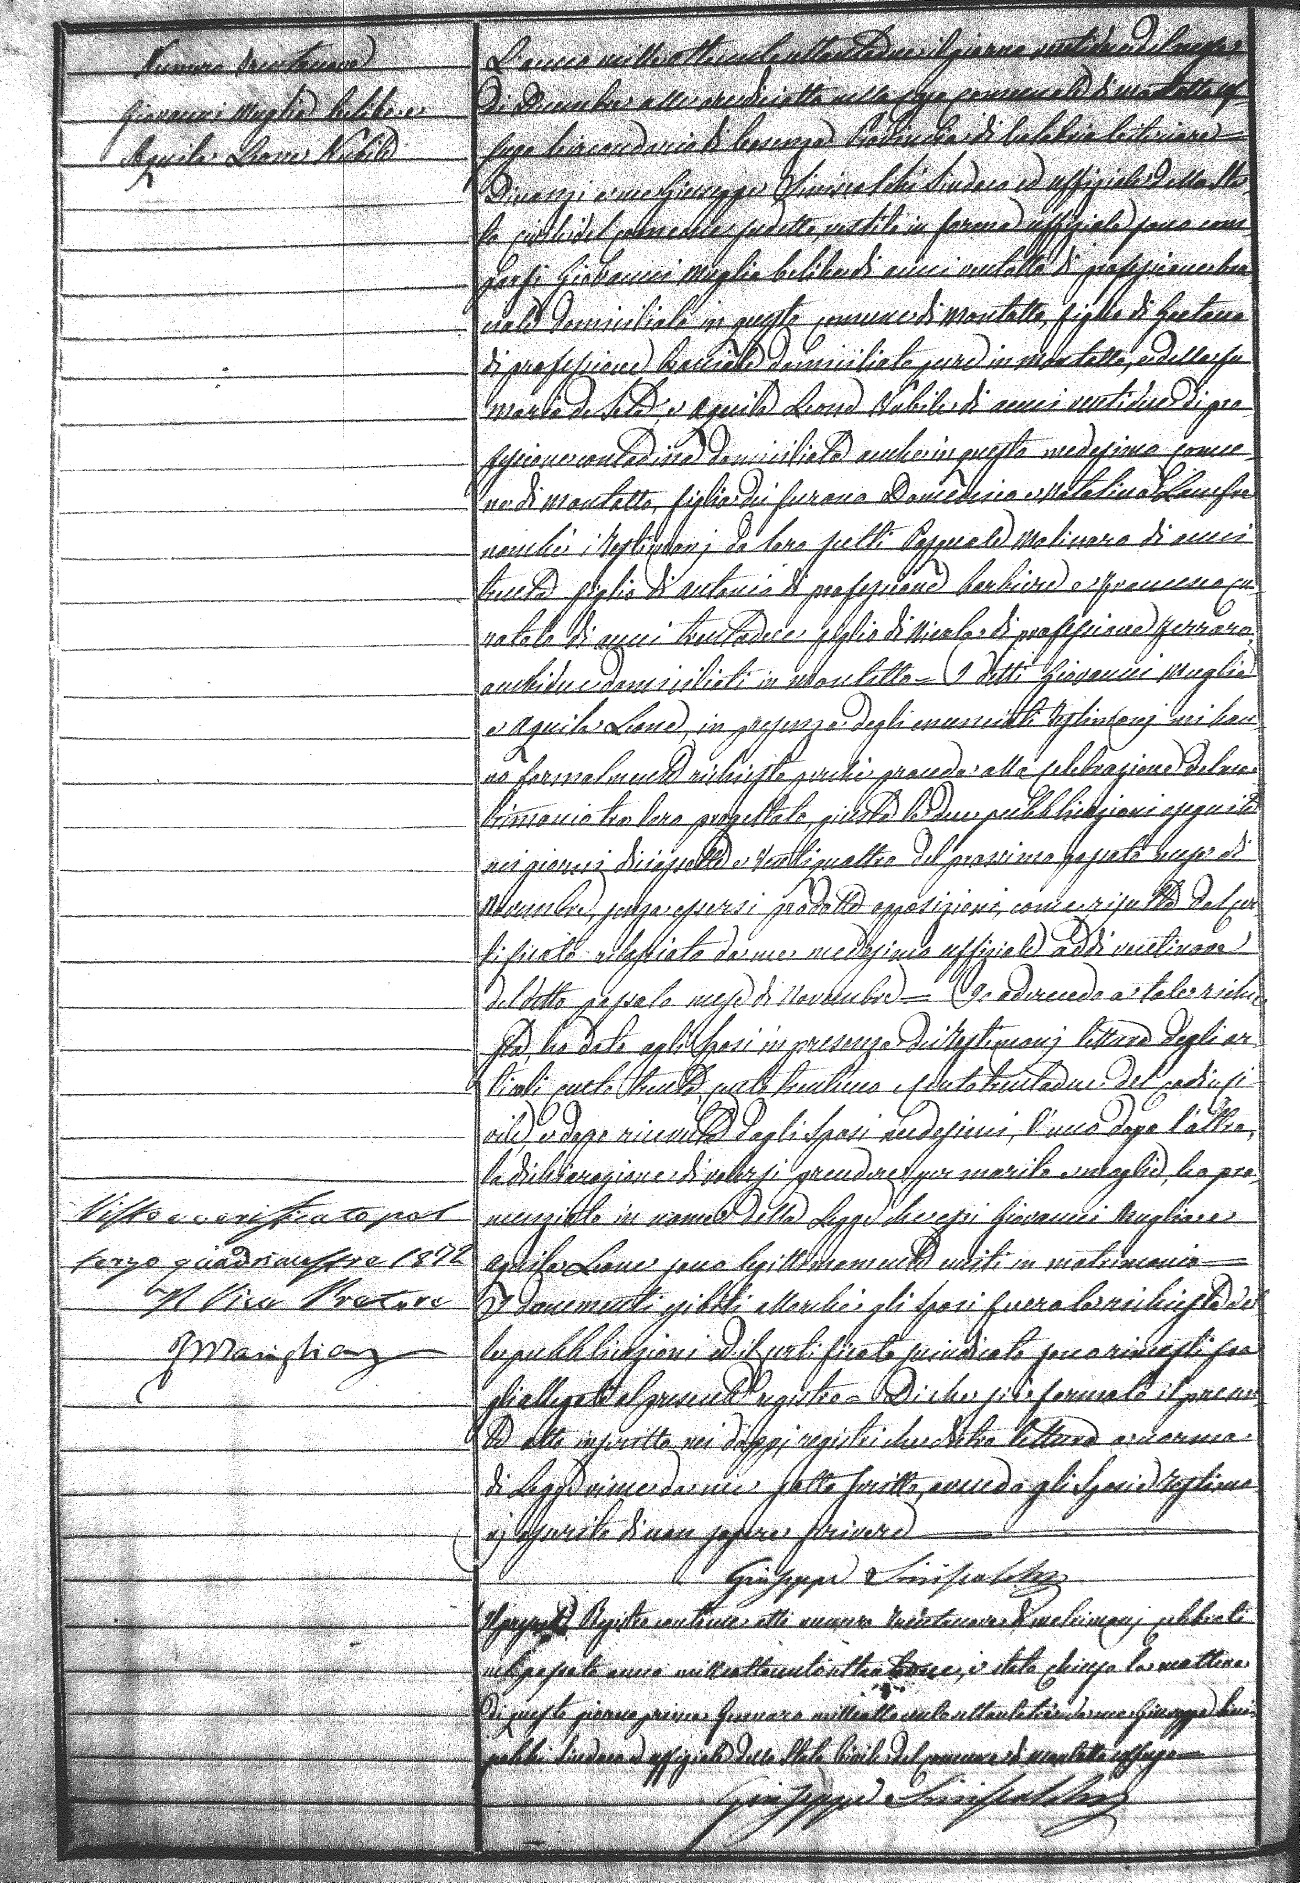 Numero trentanove
Giovanni Muglia celibe e
Aquila Leone Nubile
L'anno mille ottocento settantadue il giorno ventidue del mese
di Dicembre alle ore diciotto nella casa comunale di Montalto uf-
fugo Circondario di Cosenza Provincia di Calabria Citeriore =
Dinanzi a me Giuseppe Siniscalchi Sindaco ed uffiziale dello Sta-
to civile del comune sudetto, vestito in forma uffiziale sono com
parsi Giovanni Muglia celibe di anni ventotto di professione brac
ciale domiciliato in questo comune di Montalto, figlio di Gaetano
di professione bracciale domiciliato pure in Montalto, e della fu
Maria de Seta, e Aquila Leone Nubile di anni ventidue di pro-
fessione contadina domiciliata anche in questo medesimo comu-
ne di Montalto, figlia dei furono Domenico e Natalina
nonché i Testimonj da loro scelti Pasquale Molinaro di anni
trenta figlio di Antonio di professione barbiere e Francesco
di anni trentadue figlio di Nicola di professione Ferraro,
anchedue domiciliati in Montalto = I detti Giovanni Muglia
e Aquila Leone, in presenza degli enunciati Testimonj mi han-
no formalmente richiesto perché proceda alla celebrazione del ma-
trimonio tra loro progettato, giusta le due pubblicazioni eseguite
nei giorni diciassette e ventiquattro del prossimo passato mese di
Novembre, senza essersi prodotta opposizioni, come risulta dal cer
tificato rilasciato da me medesimo uffiziale addì ventinove
del detto passato mese di Novembre = Io aderendo a tale richie
sta, ho dato agli Sposi in presenza dei Testimonj lettura degli ar
ticoli cento trenta, cento trentuno e centotrentadue del codice ci
vile e dopo ricevuta dagli Sposi medesimi, l'uno dopo l'altro,
la dichiarazione di volersi prendere per marito e moglie, ho pro-
nunziato in nome della Legge che essi Giovanni Muglia e
Aquila Leone sono legittimamente uniti in matrimonio =
I documenti esibiti allorché gli sposi fecero la richiesta del
le pubblicazioni ed il certificato succitato sono rimasti fra
gli allegati al presente registro = Di che si è formato il presen
te atto inscritto nei doppj registri che dietro lettura a norma
di Legge viene da me solo scritto, avendo gli Sposi e Testimo
nj asserito di non sapere scrivere
Giuseppe Siniscalchi
Visto e verificato pel
terzo quadrimestre 1872
Il Vice Pretore
Il presente Registro contiene atti numero trentanove di matrimonj celebrati
nel passato anno milleottocentosettantadue, è stato chiuso la mattina
di questo giorno primo Gennaro milleottocentosettantatré da me Giuseppe Sini-
scalchi Sindaco ed uffiziale dello Stato Civile del comune di Montalto uffugo =
Giuseppe Siniscalchi